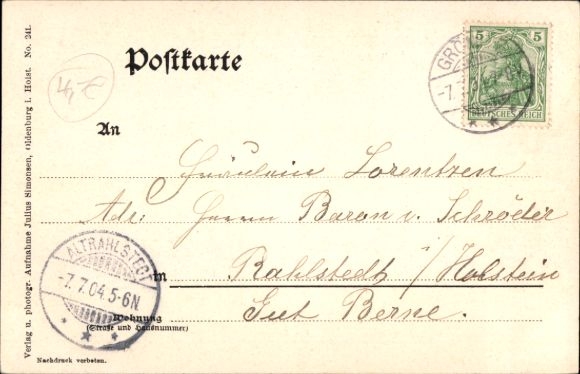 Postkarte
4,- €
GRÖ
-7.7.
5 5
DEUTSCHES REICH
An
Fräulein Lorentzen
Adr: Herrn Baron v. Schröder
in
Rahlstedt / Holstein
Gut Berne.
Wohnung
(Straße und Hausnummer)
ALTRAHLSTEDT
-7.7.04.5-6N
Nachdruck verboten.
Verlag u. photogr. Aufnahme Julius Simonsen, Oldenburg i. Holst. No. 241.